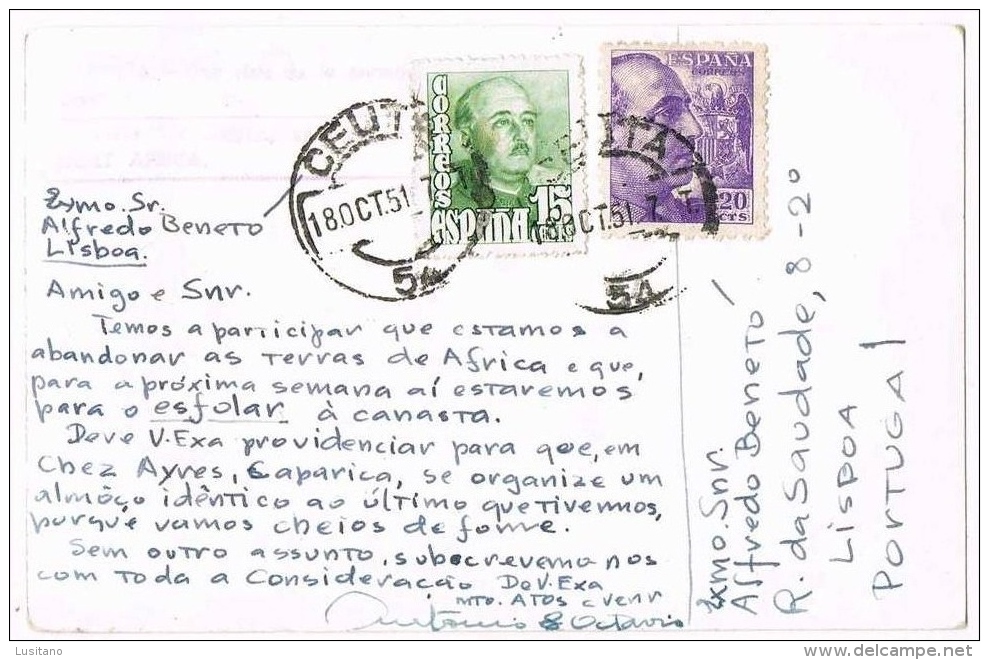 CORREOS
15
CTS
ESPAÑA
ESPAÑA
CORREOS
20
CTS
CEUTA
18.OCT.51
5A
CEUTA
18.OCT.51 7
5A
Exmo. Sr.
Alfredo Beneto
Lisboa.
Amigo e Snr.
Temos a participar que estamos a
abandonar as terras de Africa e que,
para a próxima semana aí estaremos
para o esfolar à canasta.
Deve V. Exa providenciar para que, em
Chez Ayres, Caparica, se organize um
almôço idêntico ao último que tivemos,
porque vamos cheios de fome.
Sem outro assunto, subscrevemo nos
com toda a Consideração De V. Exa
mto. Atos e Venr
Antonio & Octavio
Exmo. Snr.
Alfredo Beneto
R. da Saudade, 8-2º
Lisboa
Portugal
Lusitano
www.delcampe.net